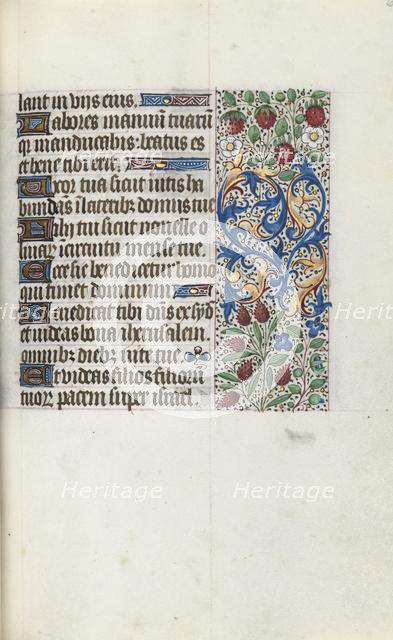 lant in viis eius.
Labores manuum tuarū
q̄ manducabis: beatus es
et bene tibi erit.
Uxor tua sicut vitis ha
bundās ī lateribꝰ domus tue
Filii tui sicut novelle o
livarū: in circuitu mense tue
Ecce sic benedicetur homo
qui timet dominum
Benedicat tibi dn̄s ex syō
et videas bona iherusalem
omnibꝫ diebꝫ vite tue
Et videas filios filiorū
tuoꝝ pacem super israel.
Heritage
Heritage
Heritage
Heritage
Heritage
Heritage